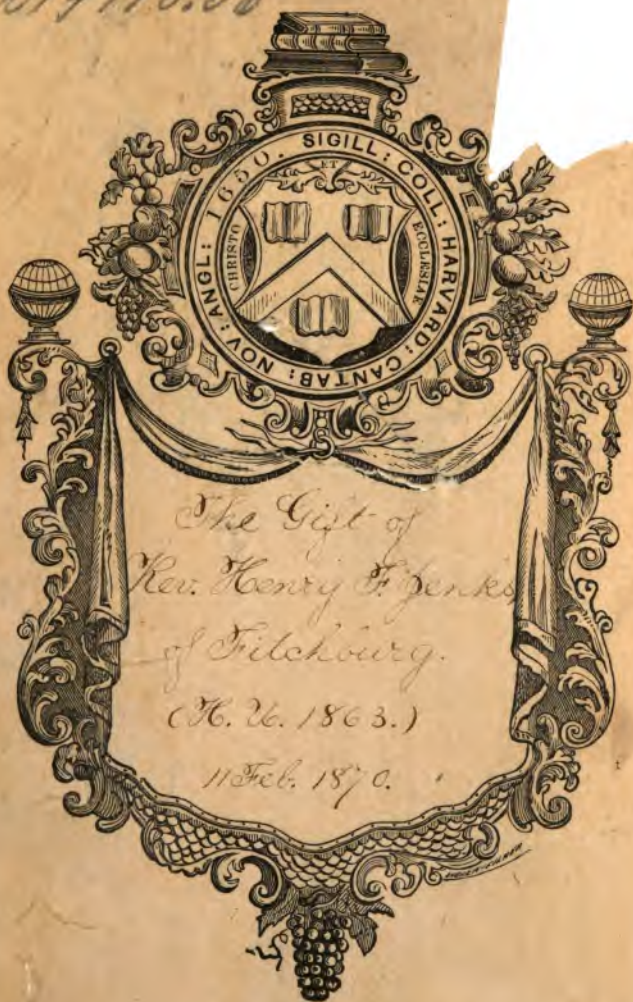 SIGILL: COLL: HARVARD: CANTAB: NOV: ANGL: 1650.
ET
CHRISTO
ECCLESIAE
The Gift of
Rev. Henry F. Jenks
of Fitchburg.
(H. U. 1863.)
11 Feb. 1870.